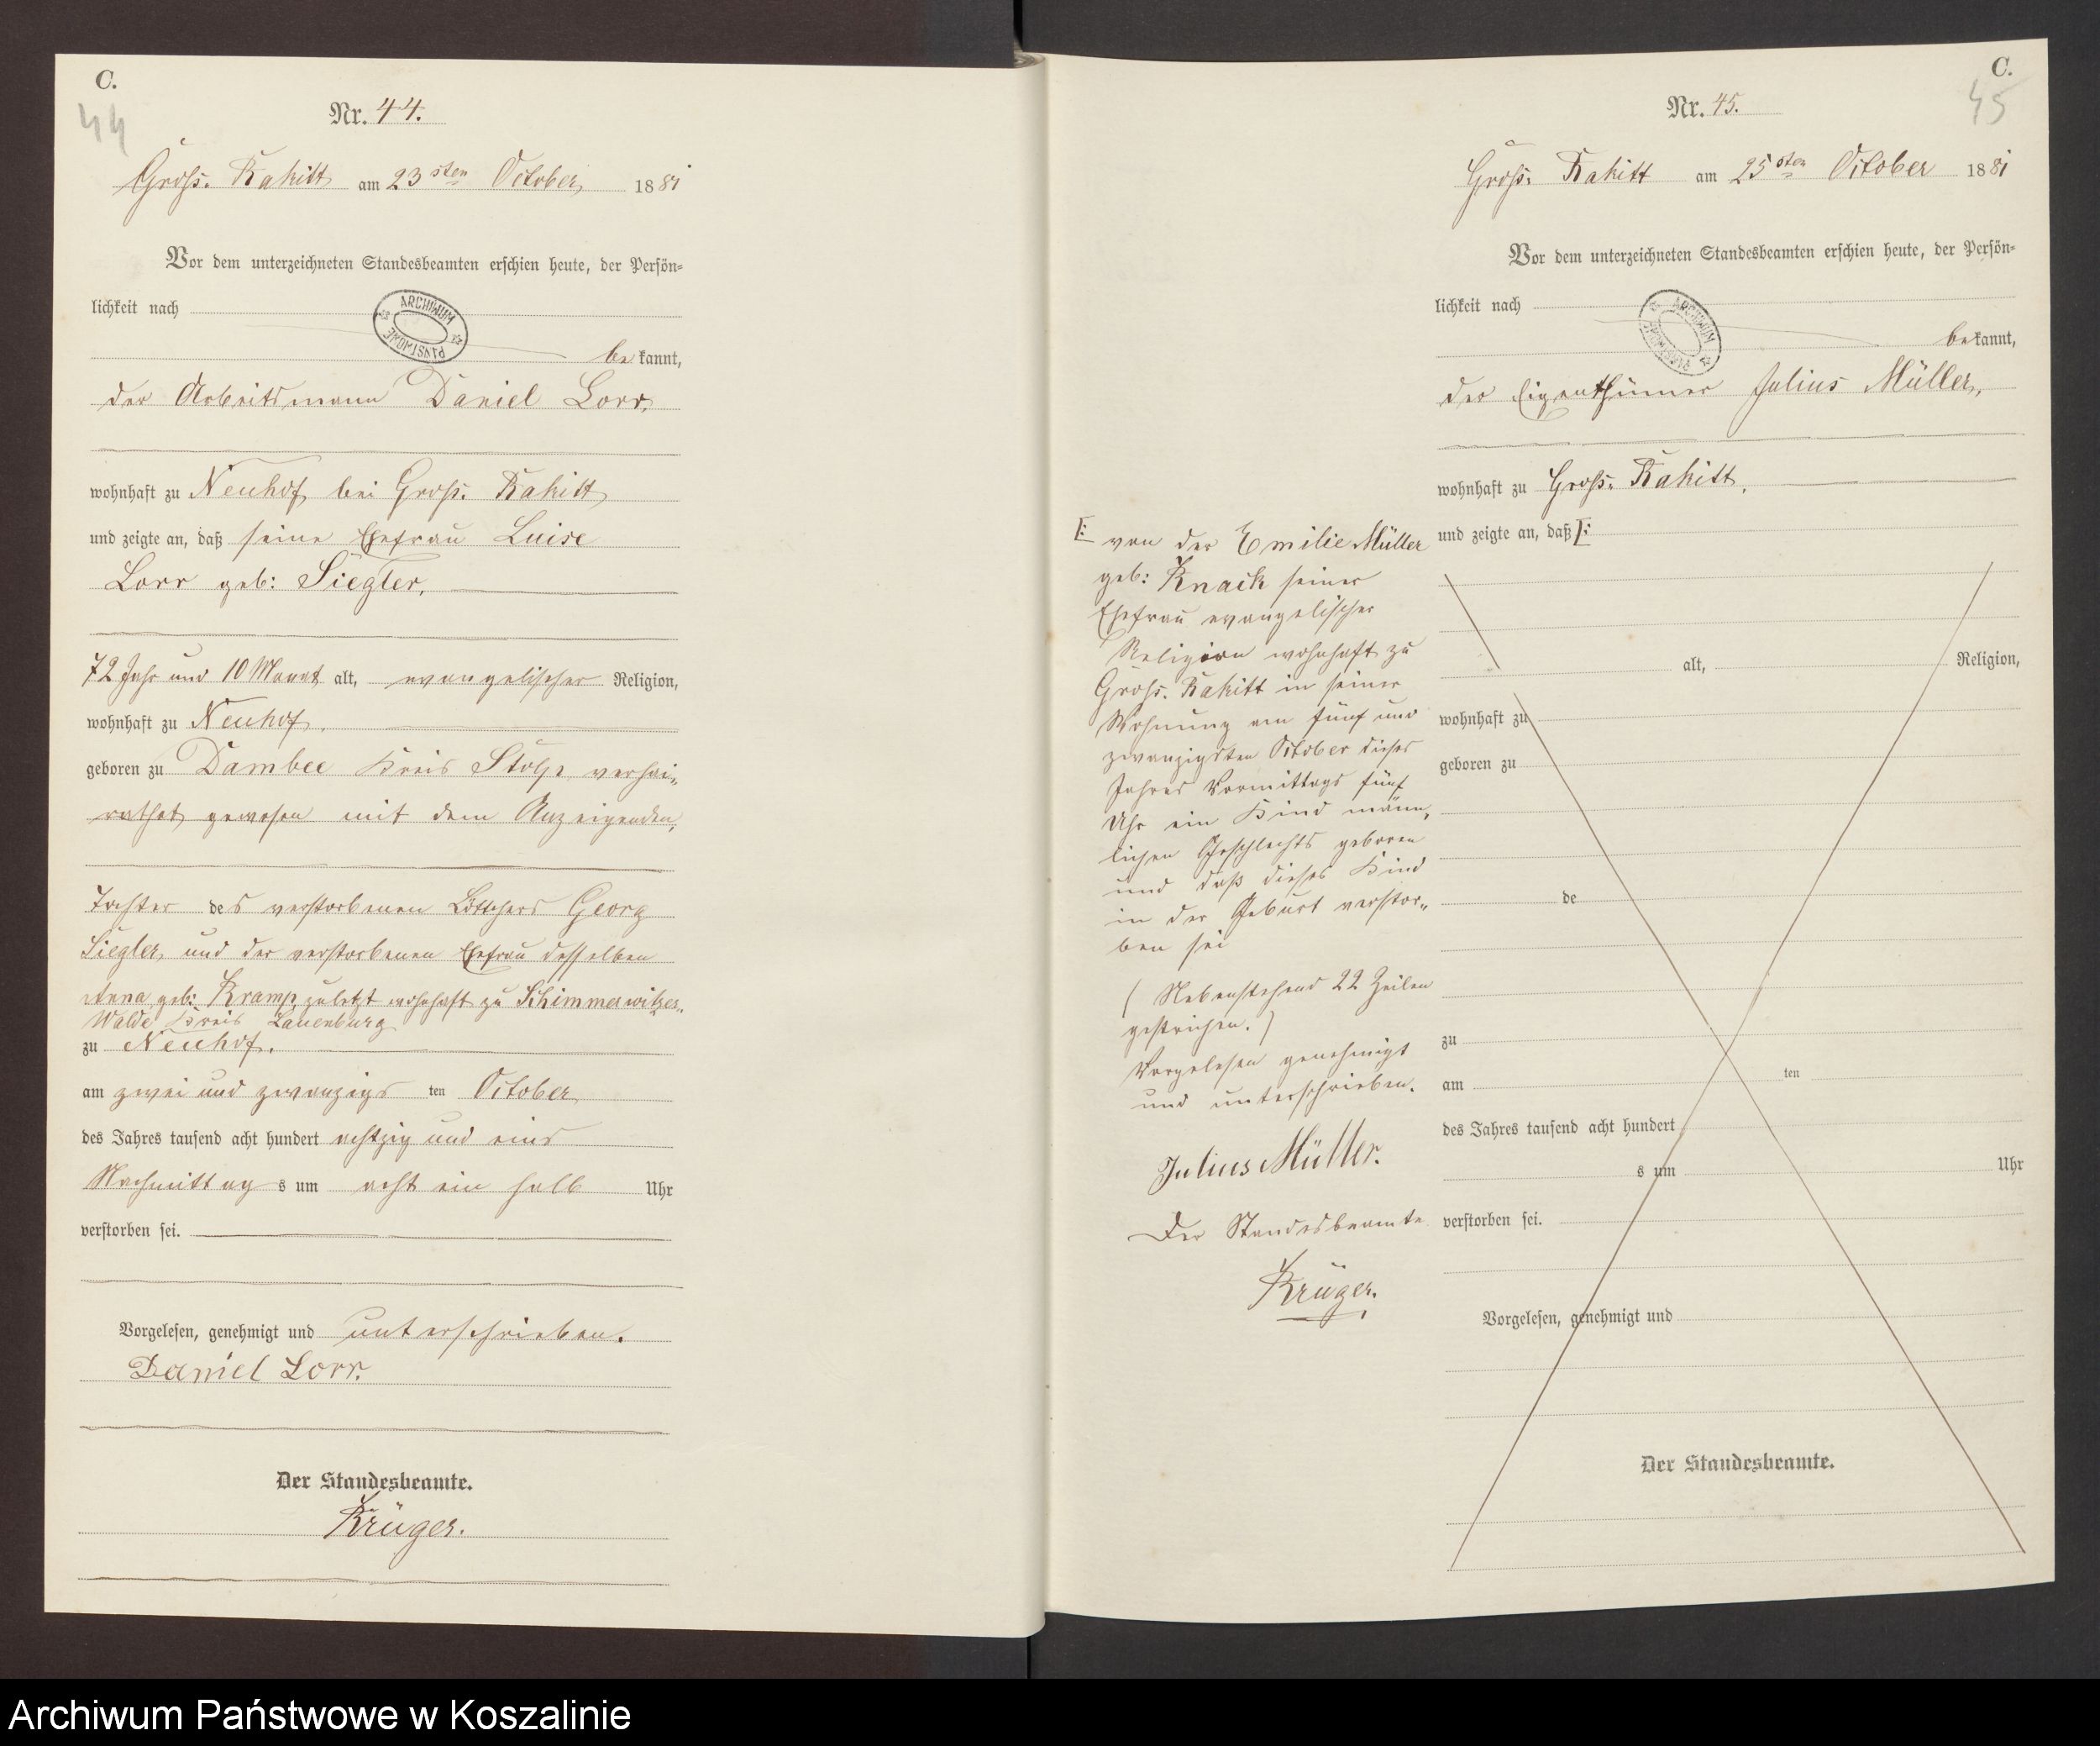 C.
44
Nr. 44.
Gross. Rakitt am 23sten October 1881
Vor dem unterzeichneten Standesbeamten erschien heute, der Persön=
lichkeit nach
ARCHIWUM PAŃSTWOWE
bekannt,
der Arbeitsmann Daniel Lorr,
wohnhaft zu Neuhof bei Gross. Rakitt
und zeigte an, daß seine Ehefrau Luise
Lorr geb: Siegler,
72 Jahr und 10 Monat alt, evangelischer Religion,
wohnhaft zu Neuhof,
geboren zu Dambee Kreis Stolp verhei=
rathet gewesen mit dem Anzeigenden,
Tochter des verstorbenen Böttchers Georg
Siegler, und der verstorbenen Ehefrau desselben
Anna geb: Kramp, zuletzt wohnhaft zu Schimmerwitzer=
Walde Kreis Lauenburg
zu Neuhof.
am zwei und zwanzigsten October
des Jahres tausend acht hundert achtzig und eins
Nachmittags um acht ein halb Uhr
verstorben sei.
Vorgelesen, genehmigt und unterschrieben.
Daniel Lorr.
Der Standesbeamte.
Krüger.
C.
45
Nr. 45.
Gross. Rakitt am 25sten October 1881
Vor dem unterzeichneten Standesbeamten erschien heute, der Persön=
lichkeit nach
ARCHIWUM PAŃSTWOWE
bekannt,
der Eigenthümer Julius Müller,
wohnhaft zu Gross. Rakitt,
und zeigte an, daß [:
[: von der Emilie Müller
geb: Knack seiner
Ehefrau evangelischer
Religion wohnhaft zu
Gross. Rakitt in seiner
Wohnung am fünf und
zwanzigsten October dieses
Jahres Vormittags fünf
Uhr ein Kind männ=
lichen Geschlechts geboren
und daß dieses Kind
in der Geburt verstor=
ben sei
(Nebenstehend 22 Zeilen
gestrichen.)
Vorgelesen genehmigt
und unterschrieben.
Julius Müller.
Der Standesbeamte
Krüger.
alt, Religion,
wohnhaft zu
geboren zu
de
zu
am ten
des Jahres tausend acht hundert
s um Uhr
verstorben sei.
Vorgelesen, genehmigt und
Der Standesbeamte.
Archiwum Państwowe w Koszalinie